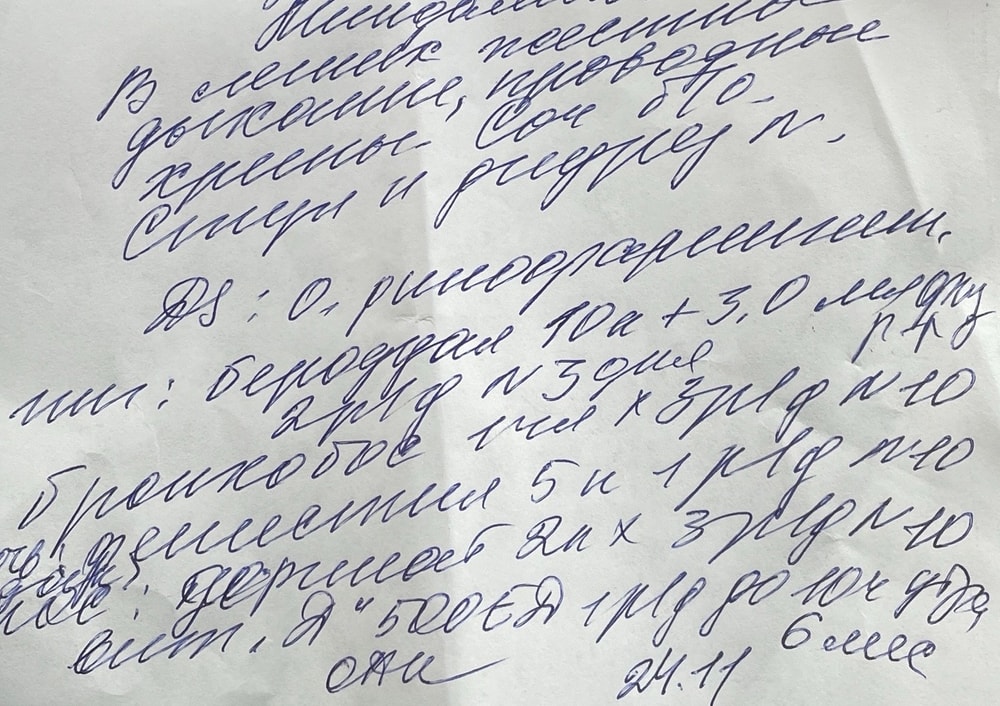 Миндалины
В легких жесткое
дыхание, проводные
хрипы. Соч б/о.
Стул и диурез N.
DS: О. ринофарингит.
инг: беродуал 10к + 3,0 мл физ р-р
2р/д N 3 дня
бронхобос 1чл х 3р/д N10
фенистил 5к 1р/д N10
нос: деринат 2к х 3р/д N10
вит. "Д" 500ЕД 1р/д до 10ч утра,
6 мес
ОАК 24.11